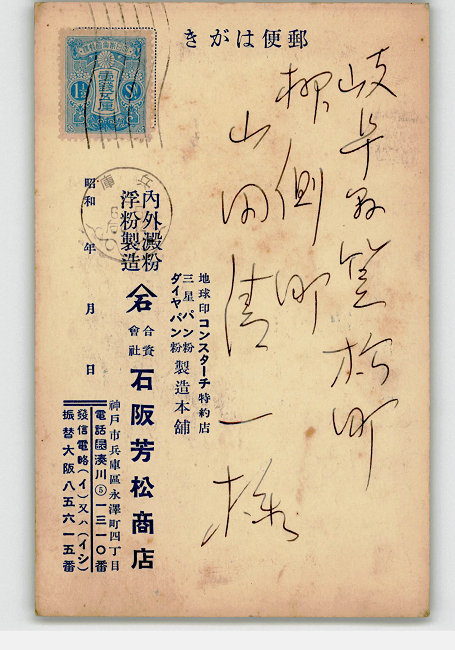 郵便はがき
岐阜県笠松町
柳側町
山田清一様
地球印コンスターチ特約店
三星パン粉
ダイヤパン粉
製造本舗
內外澱粉
浮粉製造
合資
會社
石阪芳松商店
神戸市兵庫區永澤町四丁目
電話湊川⑤一三一〇番
發信電略(イ)又ハ(イシ)
振替大阪八五六一五番
昭和 年 月 日
兵庫